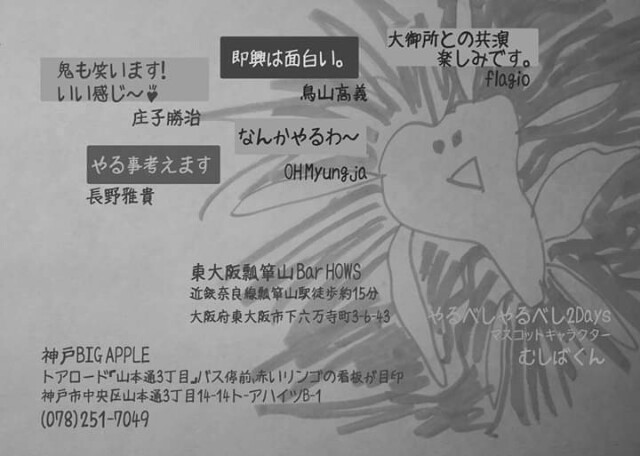 鬼も笑います!
いい感じ〜
庄子勝治
即興は面白い。
鳥山高義
大御所との共演
楽しみです。
flagio
なんかやるわ〜
OHMyungja
やる事考えます
長野雅貴
東大阪瓢箪山Bar HOWS
近鉄奈良線瓢箪山駅徒歩約15分
大阪府東大阪市下六万寺町3-6-43
やるべしやるべし2Days
マスコットキャラクター
むしばくん
神戸BIG APPLE
トアロード『山本通3丁目』バス停前、赤いリンゴの看板が目印
神戸市中央区山本通3丁目14-14トーアハイツB-1
(078)251-7049